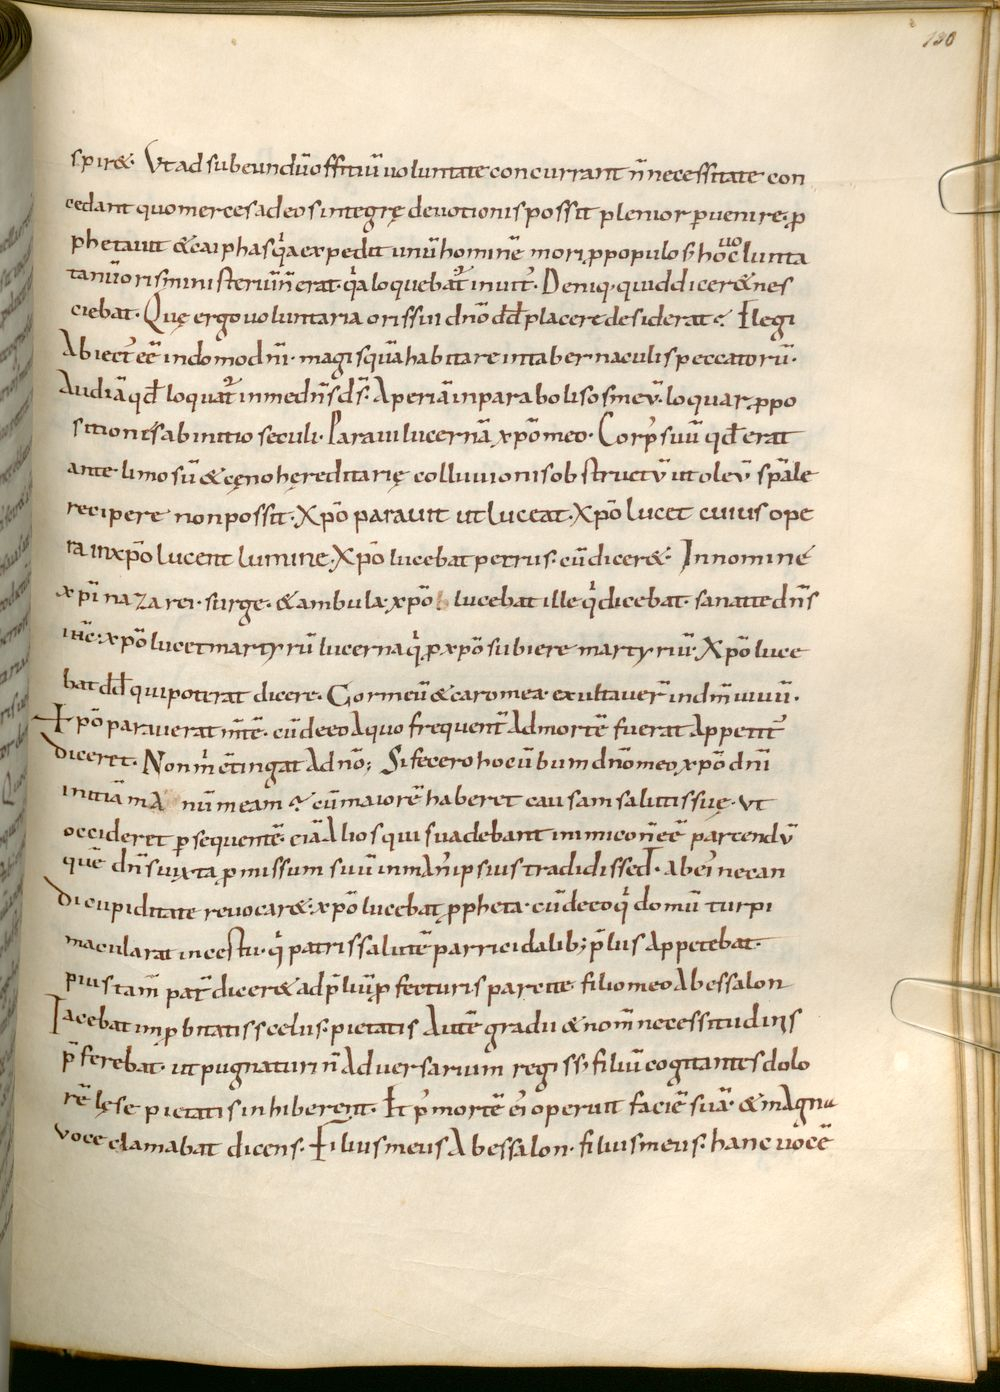 130
spir&. Vt ad subeundū offitiū uoluntate concurrant n̄ necessitate con
cedant quo merces ad eos integrę deuotionis possit plenior ꝑuenire. ꝓ
phetauit & caiphas q̇a expedit unū hominē mori ꝓ populo s; hoc uoluntа
tanū oris ministeriū n̄ erat. q̇a loquebat᷑ inuit᷒. Deniq. quid dicer& nes
ciebat. Quę ergo uoluntaria oris sui dn̄o dd̄ placere desiderat? Elegi
Abiect᷒ eē in domo dn̄i. magis quā habitare in tabernaculis peccatorū.
Audiā qd̄ loquat᷑ in me dn̄s ds̄. Aperiā in parabolis os meū. loquar ꝓpo
sitiones ab initio seculi. Paraui lucernā xp̄o meo. Corp᷒ suū qd̄ erat
ante limosū & cęno hęreditarię colluuionis obstructū ut oleū sp̄ale
recipere non possit. Xp̄o parauit ut luceat. Xp̄o lucet cuius ope
ra in xp̄o lucent lumine. Xp̄o lucebat petrus. cū dicer&. In nomine
xp̄i nazarei. surge. & ambula. xp̄o lucebat ille q̇ dicebat. sanat te dn̄s
ih̄c: xp̄o lucet martyrū lucerna q̇ ꝓ xp̄o subiere martyriū. Xp̄o luce
bat dd̄ qui poterat dicere. Cor meū & caro mea exultauer̄ in dm̄ uiuū.
Xp̄o parauerat m̄tē. cū de eo A quo frequent̄ Ad mortē fuerat Appetit᷒
diceret. Non m̄ ctingat A dn̄o; Si fecero hoc ūbum dn̄o meo xp̄o dn̄i
initiā mA num meam? cū maiorē haberet causam salutis suę. Vt
occideret ꝑsequentē. etiā Alios qui suadebant inimico n̄ eē parcendū
quē dn̄s iuxta ꝓmissum suū in man᷒ ipsius tradidisset. ab ei᷒ necan
di cupiditate reuocar&. xp̄o lucebat ꝓpheta. cū de eo q̇ domū turpi
macularat incestu. q̇ patris salutē parricidalib; p̄lus Appetebat.
pius tam̄ pat̄ dicer& ad p̄liū ꝓfecturis parcite filio meo Abessalon
Iacebat imꝓbitatis scelus. pietatis Autē gradu & nom̄ necessitudinis
p̄ferebat. ut pugnaturi n̄ Aduersarium regis s; filiū cogitantes dolo
rē lęse pietatis inhiberent. Et p᷒ mortē ei᷒ operuit faciē suā. & mAgna
voce clamabat dicens. Filius meus Abessalon. filius meus. hanc uocē